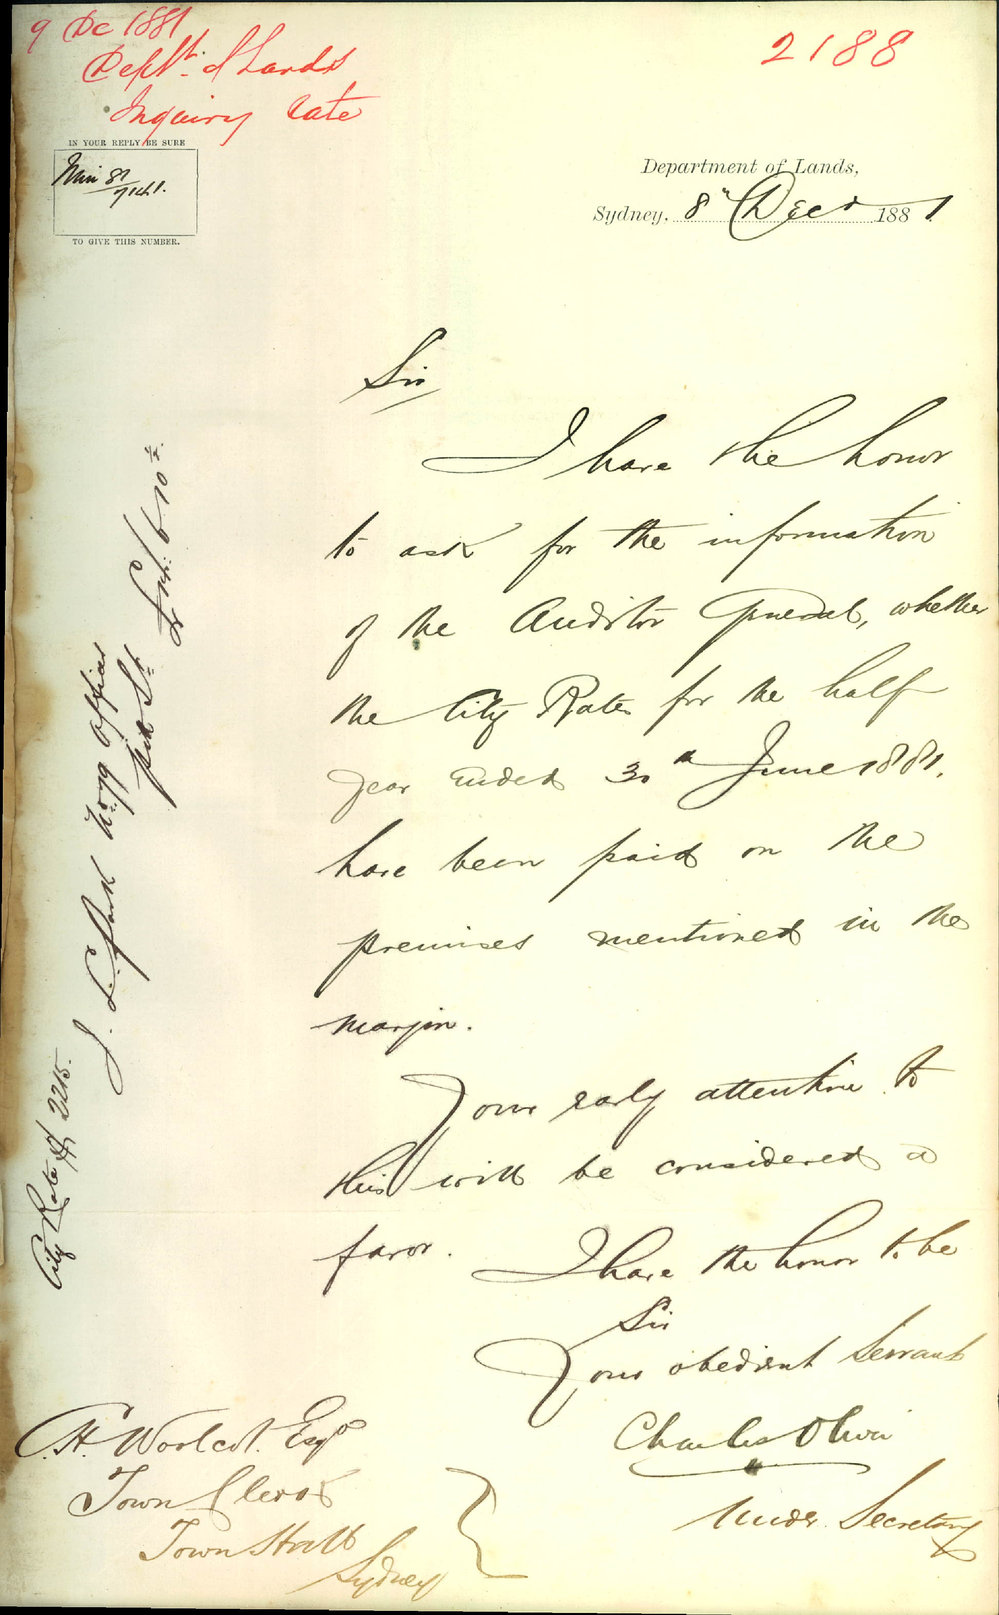 9 Dec 1881
Dept. of Lands
Inquiry Rate
2188
IN YOUR REPLY BE SURE
Min 81
TO GIVE THIS NUMBER.
Department of Lands,
Sydney, 8th Decr 1881
Sir,
I have the honor
to ask for the information
of the Auditor General, whether
the City Rates for the half
year ended 30th June 1881.
have been paid on the
premises mentioned in the
margin.
Your early attention to
this will be considered a
favor.
I have the honor to be
Sir
Your obedient Servant
Charles Oliver
Under Secretary
C. H. Woolcot. Esqre
Town Clerk
Town Hall
Sydney
City Rate 2215.
J. S. Park No 79